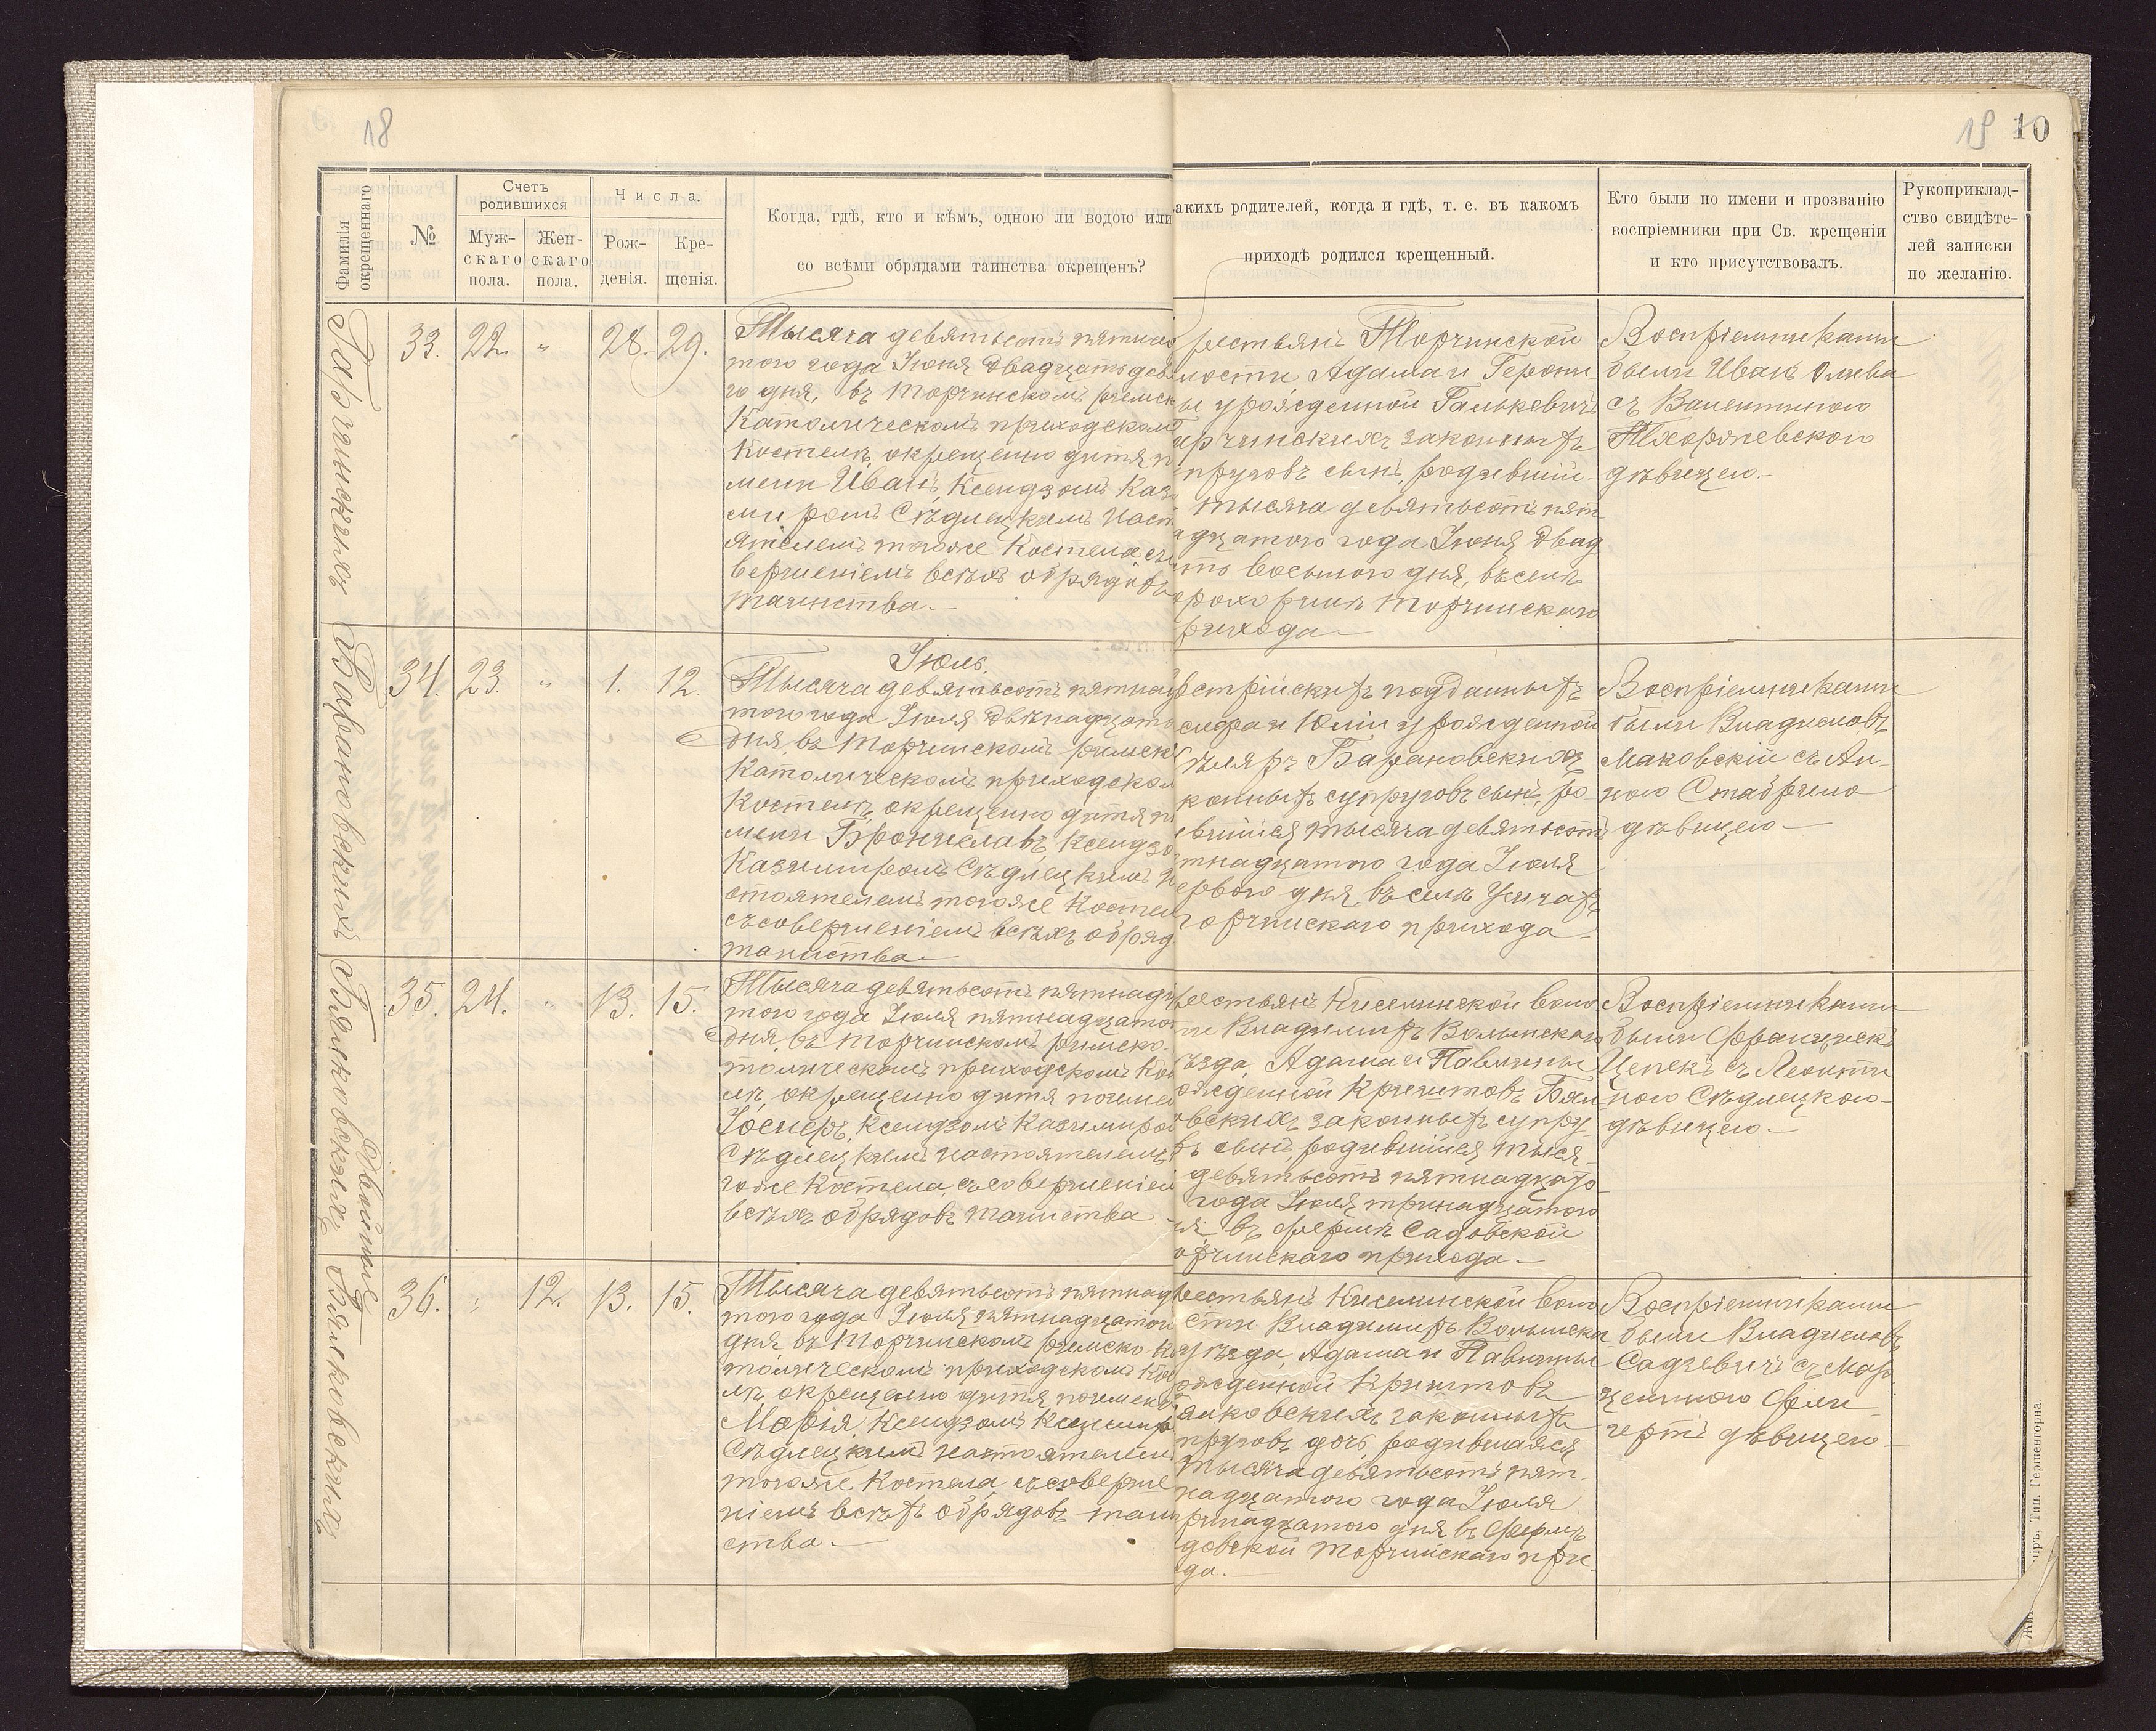 18
19 10
Фамилія
окрещеннаго
№
Счетъ
родившихся
Муж-
скаго
пола.
Жен-
скаго
пола.
Числа.
Рож-
денія.
Кре-
щенія.
Когда, гдѣ, кто и кѣмъ, одною ли водою или
со всѣми обрядами таинства окрещенъ?
акихъ родителей, когда и гдѣ, т. е. въ какомъ
приходѣ родился крещенный.
Кто были по имени и прозванію
воспріемники при Св. крещеніи
и кто присутствовалъ.
Рукоприклад-
ство свидѣте-
лей записки
по желанію.
33. 22. " 28. 29.
Тысяча девятьсотъ пятнад
того года Іюня двадцать дев
го дня, въ Торчинскомъ римск
Католическомъ приходском
Костелѣ, окрещено дитя п
мени Иванъ, Ксендзомъ Каз
миромъ Сѣдлецкимъ Наст
ятелемъ тогоже Костела съ
вершеніемъ всѣхъ обрядовъ
таинства.—
рестьянъ Торчинской
лости, Адама и Герони
ы урожденной Галькевичъ
законныхъ
пруговъ сынъ, родившій-
тысяча девятьсотъ пят
адцатого года Іюня двад
ть восьмого дня, въ селѣ
Торчинскаго
прихода—
Воспріемниками
были Иванъ Олива
съ Валентиною
дѣвицею.—
Барановскихъ
34. 23. " 1. 12.
Іюль.
Тысяча девятьсотъ пятнад
того года Іюля двѣнадцато
дня, въ Торчинскомъ римск
Католическомъ приходском
Костелѣ, окрещено дитя п
мени Брониславъ, Ксендзо
Казимиромъ Сѣдлецкимъ Н
стоятелемъ тогоже Костел
съ совершеніемъ всѣхъ обряд
таинства—
встрійскихъ подданныхъ
сифа и Юліи урожденной
Барановскихъ
конныхъ супруговъ сынъ, ро
вшійся тысяча девятьсотъ
тнадцатого года Іюля
ервого дня, въ селѣ Усичахъ
Торчинскаго прихода—
Воспріемниками
были Владиславъ
Маковскій съ Ан-
ною
дѣвицею—
Бялковскихъ
Двойные
35. 24. " 13. 15.
Тысяча девятьсотъ пятнадц
того года Іюля пятнадцато
дня, въ Торчинскомъ римско-
толическомъ приходскомъ Кос
лѣ, окрещено дитя по име
Іосифъ, Ксендзомъ Казимиро
Сѣдлецкимъ настоятелемъ
гоже Костела, съ совершеніем
всѣхъ обрядовъ таинства
рестьянъ Киселинской воло
ти Владиміръ Волынскаго
ѣзда, Адама и Павлины
ожденной Криштовъ Бял
вскихъ законныхъ супру-
ъ сынъ, родившійся тыся-
девятьсотъ пятнадцато
года Іюля тринадцатого
ня въ фермѣ Садовской
орчинскаго прихода—
Воспріемниками
были Францискъ
Цепекъ съ Леонти
ною Сѣдлецкою-
дѣвицею—
Бялковскихъ
36. " 12. 13. 15.
Тысяча девятьсотъ пятнад
того года Іюля пятнадцатого
дня въ Торчинскомъ римско К
толическомъ приходскомъ Кос
лѣ, окрещено дитя по имени
Марія, Ксендзомъ Казимир
Сѣдлецкимъ настоятелем
тогоже Костела, съ соверше
ніемъ всѣхъ обрядовъ таин
ства.—
рестьянъ Киселинской воло
сти Владиміръ Волынска
уѣзда, Адама и Павлины
ожденной Криштовъ
ялковскихъ законныхъ
пруговъ дочь, родившаяся
тысяча девятьсотъ пят-
надцатого года Іюля
ринадцатого дня въ фермѣ
довской Торчинскаго при
да.—
Воспріемниками
были Владиславъ
Садзевичъ съ Мар
дѣвицею—
Тип. Гершенгорна.